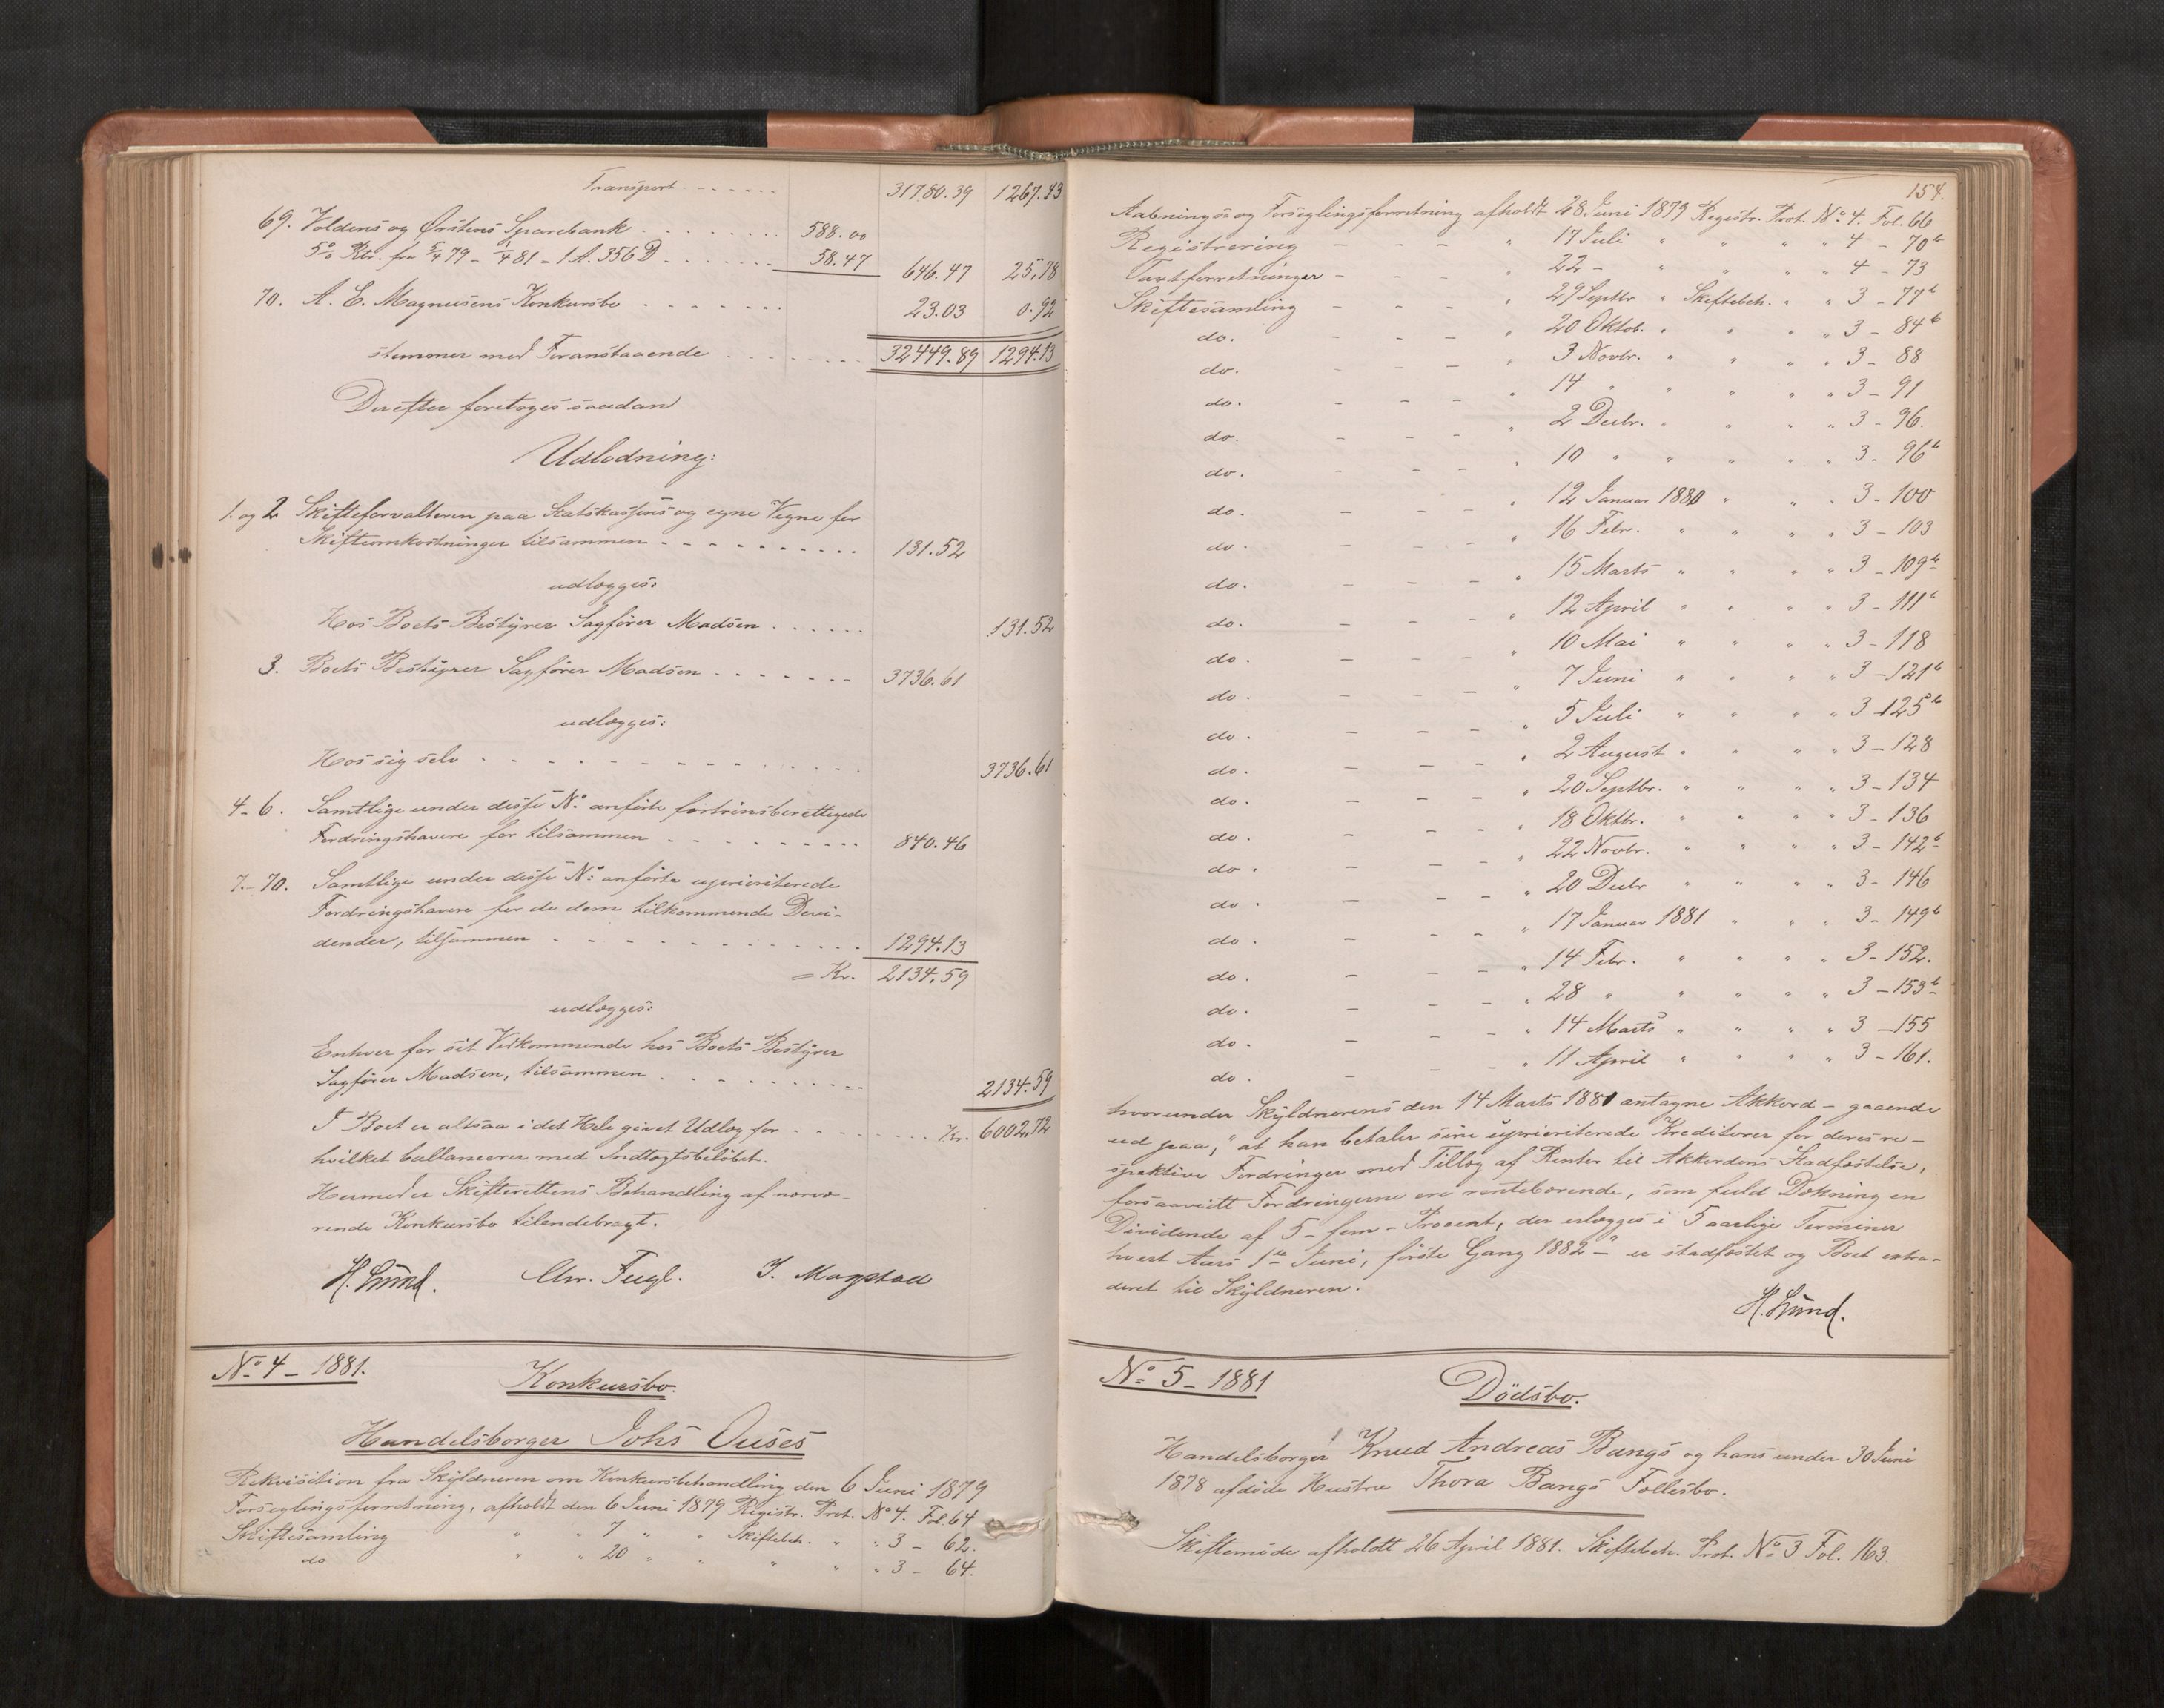 Transport . . . . . . 31780.39 1267.43
69. Voldens og Ørstens Sparebank . . . . . . . . 588.00
5% Rtr. fra 5/4 79 – 1/4 81 – 1 A. 356 D . . . . . . 58.47 646.47 25,78
70. A. E. Magnusens Konkursbo . . . . . . 23.03 0.92
stemmer med Foranstaaende . . . . . . . 32449.89 1294.13
Derefter foretoges saadan
Udlodning:
1. og 2 Skifteforvalteren paa Statskassens og egne Vegne for
Skifteomkostninger tilsammen . . . . . . . . . . 131.52
udlægges:
Hos Boets Bestyrer Sagfører Madsen . . . . . . 131.52
3. Boets Bestyrer Sagfører Madsen . . . . . . . 3736.61
udlægges:
Hos sig selv . . . . . . . . . . . . . . 3736.61
4-6. Samtlige under disse No. anførte fortrinsberettigede
Fordringshavere for tilsammen . . . . . . . . . 840.46
7.-70. Samtlige under disse No: anførte uprioriterede
Fordringshavere for de dem tilkommende Divi-
dender, tilsammen . . . . . . . . . . . . 1294.13
= Kr. 2134.59
udlægges:
Enhver for sit Vedkommende hos Boets Bestyrer
Sagfører Madsen, tilsammen . . . . . . . . . . 2134.59
I Boet er altsaa i det Hele givet Udlæg for . . . . . . . . Kr. 6002.72
hvilket ballancerer med Indtægtsbeløbet.
Hermed er Skifterettens Behandling af nærvæ-
rende Konkursbo tilendebragt.
H. Lund. Chr. Fugl. J. Magstad
No 4 – 1881. Konkursbo.
Handelsborger Johs Ouses
Rekvisition fra Skyldneren om Konkursbehandling den 6 Juni 1879
Forseglingsforretning, afholdt den 6 Juni 1879 Registr. Prot. No 4. Fol. 64
Skiftesamling " " 7 " " Skiftebeh. " " 3 – 62.
do " " 20 " " " " " 3 – 64.
154.
Aabnings- og Forseglingsforretning afholdt 28 Juni 1879 Registr. Prot. No. 4. Fol. 66
Registrering – – – " 17 Juli " " " " 4 – 70b
Taxtforretninger – – – " 22 – " " " " 4 – 73
Skiftesamling – – – " 29 Septbr " Skiftebeh. " " 3 – 77b
do. – – – " 20 Oktob. " " " " 3 – 84b
do. – – – " 3 Novbr. " " " " 3 – 88
do. – – – " 14 " " " " " 3 – 91
do. – – – " 2 Decbr. " " " " 3 – 96.
do. – – – " 10 " " " " " 3 – 96b
do. – – – " 12 Januar 1880 " " " 3 – 100
do. – – – " 16 Febr. " " " " 3 – 103
do. – – – " 15 Marts " " " " 3 – 109b
do. – – – " 12 April " " " " 3 – 111b
do. – – – " 10 Mai " " " " 3 – 118
do. – – – " 7 Juni " " " " 3 – 121b
do. – – – " 5 Juli " " " " 3 – 125b
do. – – – " 2 August " " " " 3 – 128
do. – – – " 20 Septbr. " " " " 3 – 134
do. – – – " 18 Oktbr. " " " " 3 – 136
do. – – – " 22 Novbr. " " " " 3 – 142b
do. – – – " 20 Decbr " " " " 3 – 146
do. – – – " 17 Januar 1881 " " " 3 – 149b
do. – – – " 14 Febr. " " " " 3 – 152.
do. – – – " 28 " " " " " 3 – 153b
do. – – – " 14 Marts " " " " 3 – 155
do. – – – " 11 April " " " " 3 – 161.
hvorunder Skyldnerens den 14 Marts 1881 antagne Akkord – gaaende
ud paa, "at han betaler sine uprioriterede Kreditorer for deres re-
spektive Fordringer med Tillæg af Renter til Akkordens Stadfæstelse,
forsaavidt Fordringerne ere rentebærende, som fuld Dækning en
Dividende af 5 – fem – Procent, der erlægges i 5 aarlige Terminer
hvert Aars 1ste Juni, første Gang 1882 –" er stadfæstet og Boet extra-
deret til Skyldneren.
H. Lund.
No 5 – 1881 Dödsbo.
Handelsborger Knud Andreas Bangs og hans under 30 Juni
1878 afdøde Hustru Thora Bangs Fællesbo.
Skiftemøde afholdt 26 April 1881. Skiftebeh. Prot. No 3 Fol. 163.